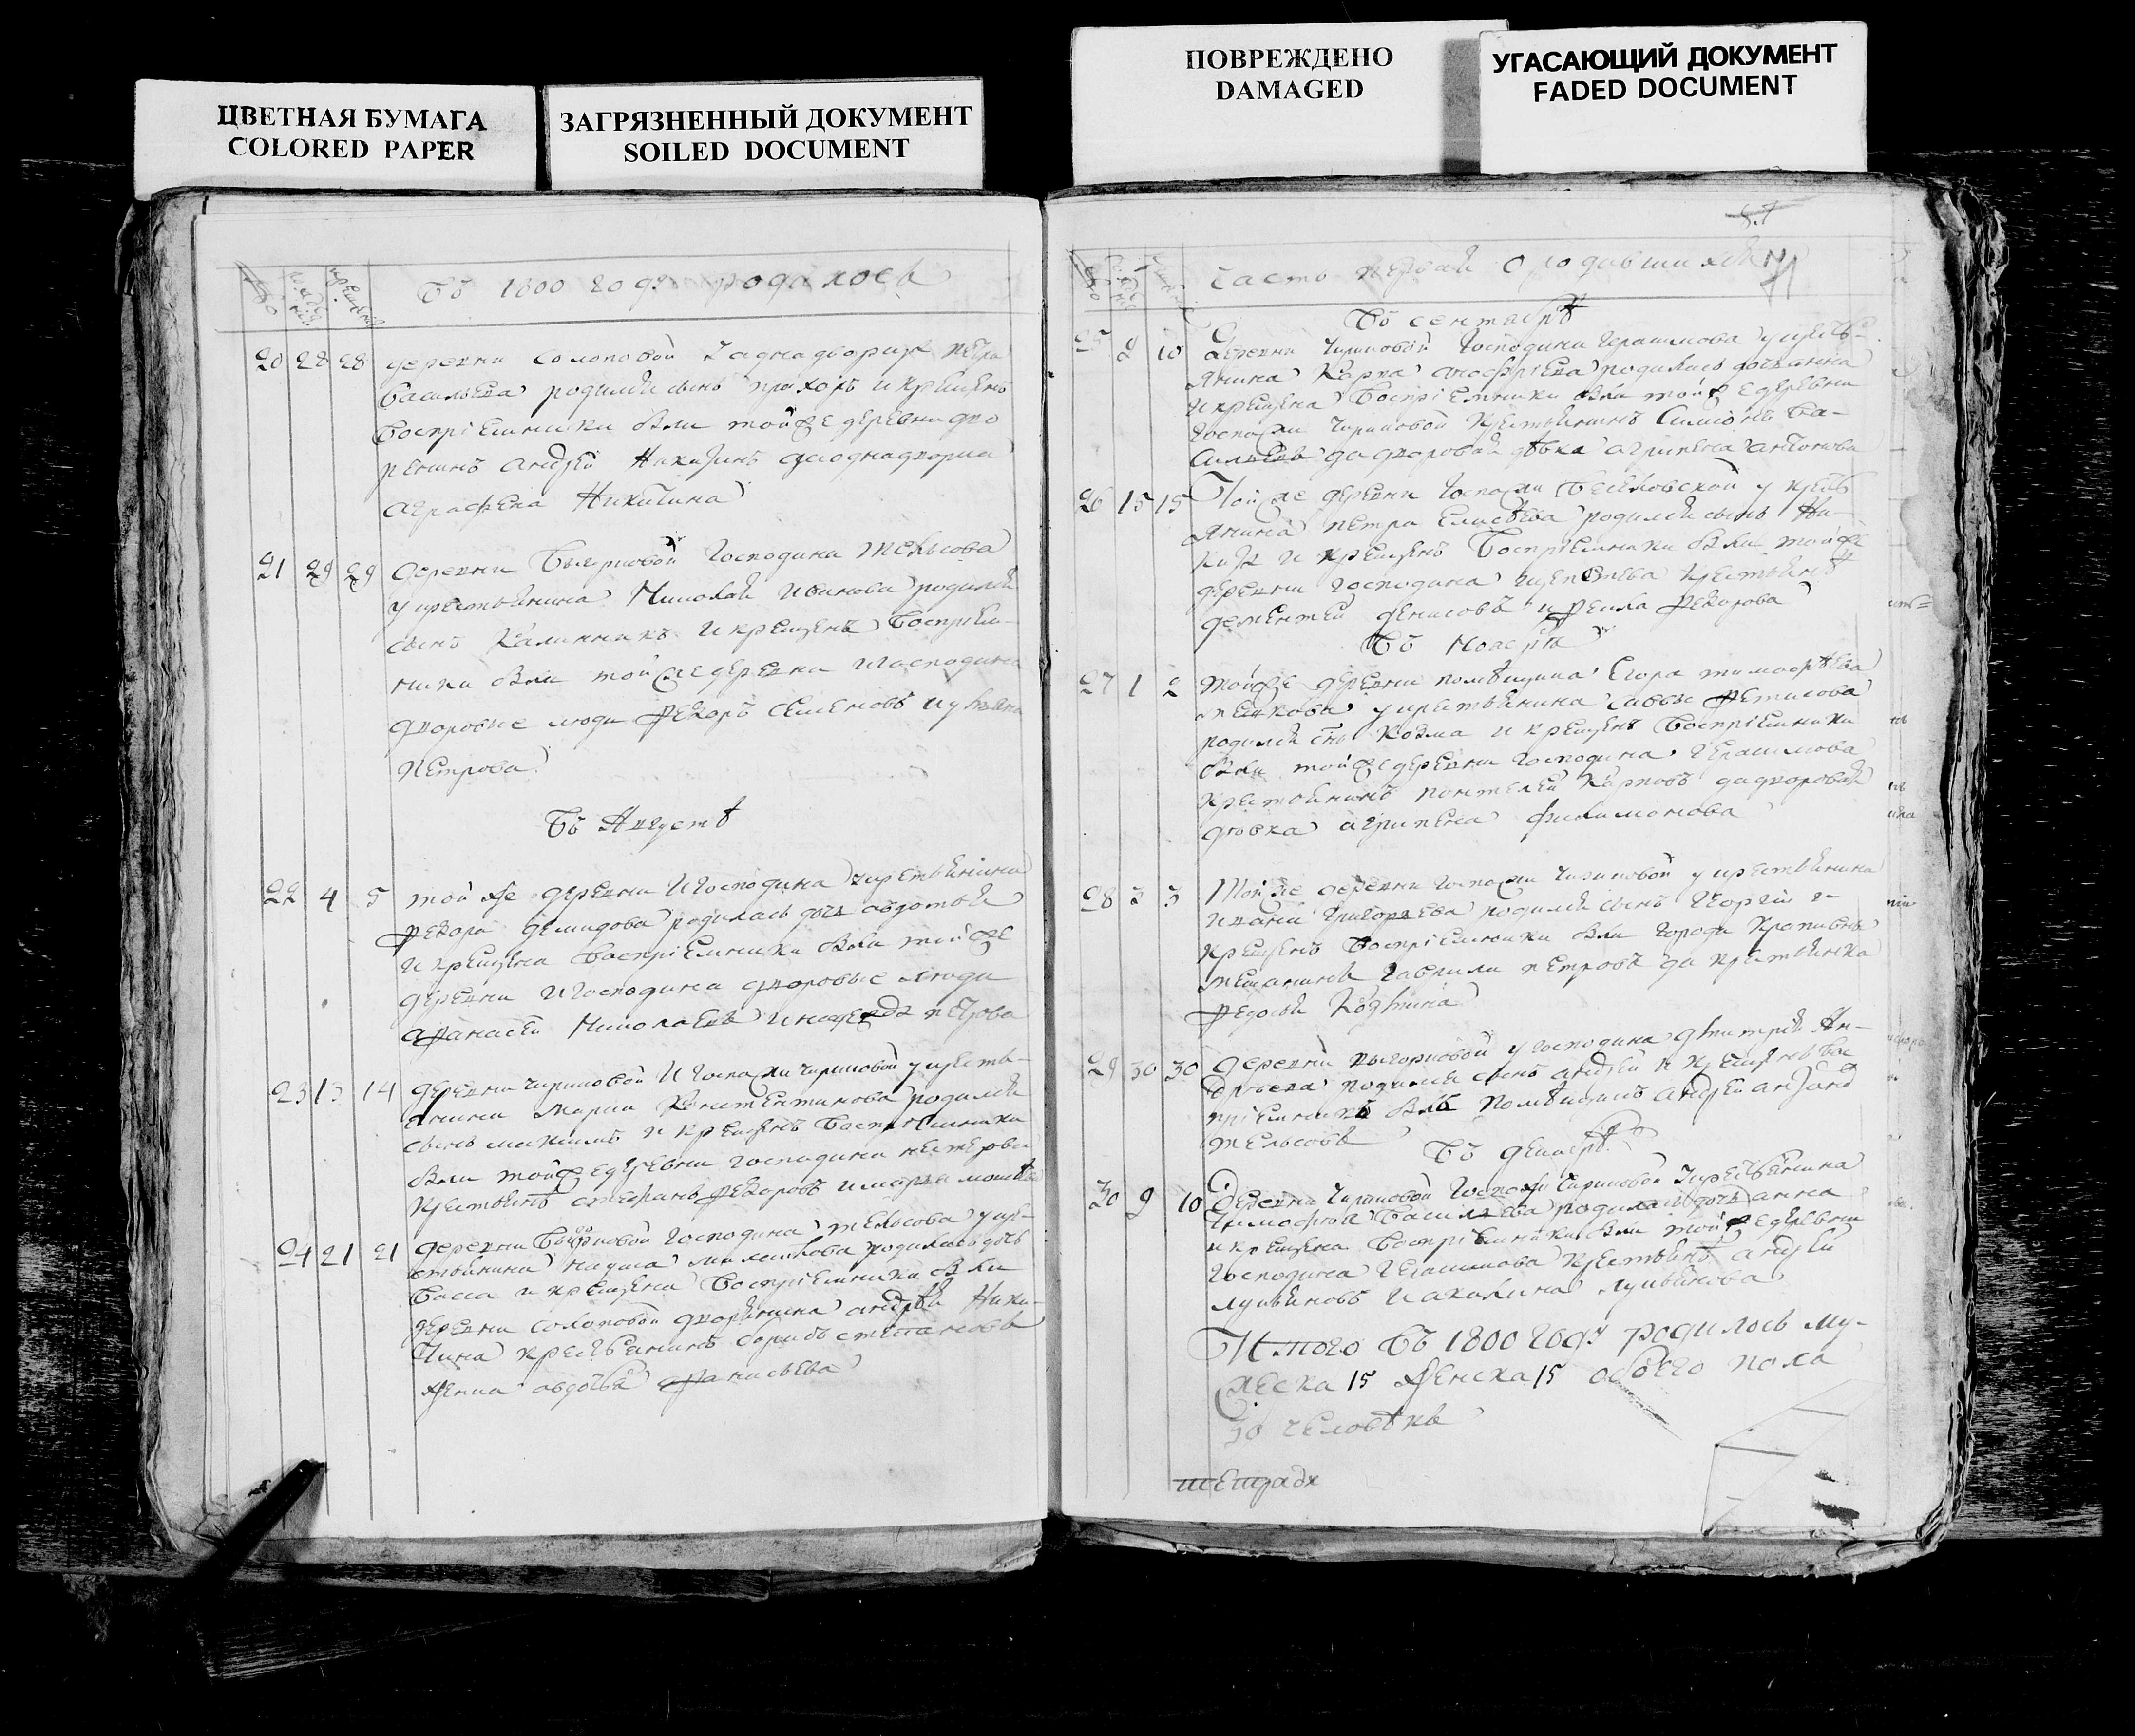 ЦВЕТНАЯ БУМАГА
COLORED PAPER
ЗАГРЯЗНЕННЫЙ ДОКУМЕНТ
SOILED DOCUMENT
ПОВРЕЖДЕНО
DAMAGED
УГАСАЮЩИЙ ДОКУМЕНТ
FADED DOCUMENT
Въ 1800 годѣ родилось
20 28 28 деревни Солоповой у аднадворца Петра
Васильева родился сынъ Прохоръ и крещенъ
Воспріемники были той же деревни дво
ренинъ Андрей Никитинъ да однадворка
Аграфена Никитина
21 29 29 деревни господина Тельсова
у крестьянина Николай Иванова родился
сынъ Калинникъ и крещенъ Воспріем-
ники были той же деревни и господина
дворовые люди Федоръ Семеновъ и Ульяна
Петрова
Въ Августѣ
22 4 5 той же деревни и господина у крестьянина
Федора Демидова родилась дочь Авдотья
и крещена Воспріемники были той же
деревни и господина дворовые люди
Афанасей Николаевъ и Петрова
23 13 14 деревни Чириковой и госпожи Чириковой у кресть-
янина Констентинова родился
сынъ Максимъ и крещенъ Воспріемники
были той же деревни господина
крестьянинъ Стефанъ Федоровъ и Марья
24 21 21 деревни господина Тельсова у кре-
стьянина Наума родилась дочь
Васса и крещена Воспріемники были
деревни Солоповой дворянина Андрей Ники-
тина крестьянинъ Борисъ Степановъ
женка Авдотья Афанасьева
Часть первая о родившихся
Въ сентябрѣ
25 9 10 Деревни Чириковой господина Герасимова у кресть-
янина Карпа родилась дочь Анна
и крещена Воспріемники были той же деревни
госпожи Чириковой крестьянинъ Симіонъ Ва-
сильевъ да дворовая дѣвка Агрипена Антонова
26 15 15 Той же деревни госпожи у крест
янина Петра Елисѣева родился сынъ Ни-
кита и крещенъ Воспріемники были той же
деревни господина крестьянинъ
Дементей Денисовъ и Фекла Федорова
Въ Ноябрѣ
27 1 2 той же деревни помѣщика Егора Тимоофѣева
у крестьянина Саввы Фетисова
родился снъ Козма и крещенъ Воспріемники
были той же деревни господина Герасимова
крестьянинъ Пантелей Карповъ да дворовая
дѣвка Агрипена Филимонова
28 3 3 Той же деревни госпожи Чириковой у крестьянина
Ивана Григорьева родился сынъ Георгій и
крещенъ Воспріемники были города Крапивны
мещанинъ Гаврила Петровъ да крестьянка
Федосья Кодмина
29 30 30 деревни у господина Дмитрія Ан-
дрѣева родился сынъ Андрей и крещенъ Вос
пріемникъ былъ помѣщикъ Андрей
Тельсовъ
Въ декабрѣ
30 9 10 Деревни Чириковой госпожи Чириковой у крестьянина
Тимофѣя Васильева родилась дочь Анна
и крещена Воспріемники были той же деревни
господина Герасимова крестьянинъ Андрей
Лукьяновъ и Акилина Лукьянова
Итого Въ 1800 годѣ родилось му-
жеска 15 женска 15 обоего пола
30 человѣкъ